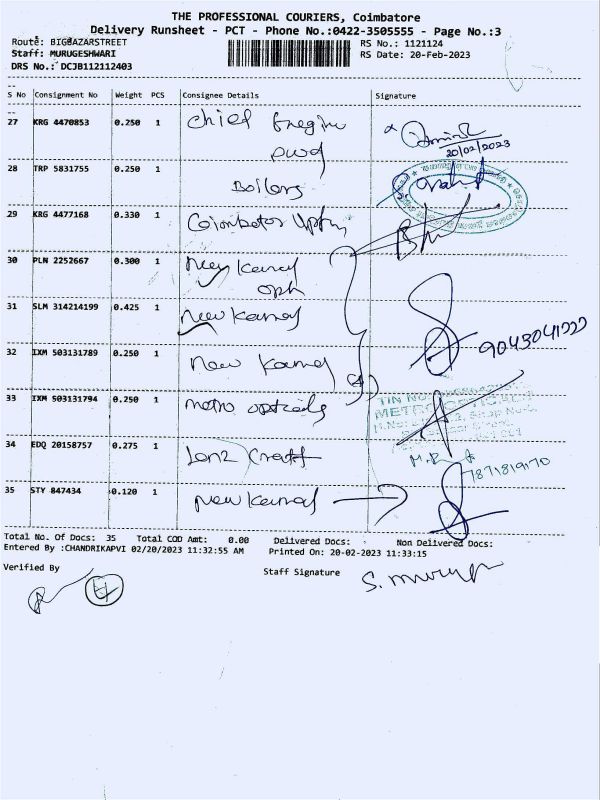 THE PROFESSIONAL COURIERS, Coimbatore
Delivery Runsheet - PCT - Phone No.:0422-3505555 - Page No.:3
Route: BIGBAZARSTREET
RS No.: 1121124
Staff: MURUGESHWARI
RS Date: 20-Feb-2023
DRS No.: DCJB112112403
S No Consignment No Weight PCS Consignee Details Signature
27 KRG 4470853 0.250 1 Chief
PWD
20/02/2023
28 TRP 5831755 0.250 1 Boilers
29 KRG 4477168 0.330 1 Coimbatore
30 PLN 2252667 0.300 1 New Kamal
31 SLM 314214199 0.425 1 New Kamal
9043041222
32 IXM 503131789 0.250 1 New Kamal
(4)
33 IXM 503131794 0.250 1 Metro opticals
TIN NO.
34 EDQ 20158757 0.275 1 Lenz Craft
7871819170
35 STY 847434 0.120 1 New Kamal
Total No. Of Docs: 35 Total COD Amt: 0.00 Delivered Docs: Non Delivered Docs:
Entered By :CHANDRIKAPVI 02/20/2023 11:32:55 AM Printed On: 20-02-2023 11:33:15
Verified By
Staff Signature